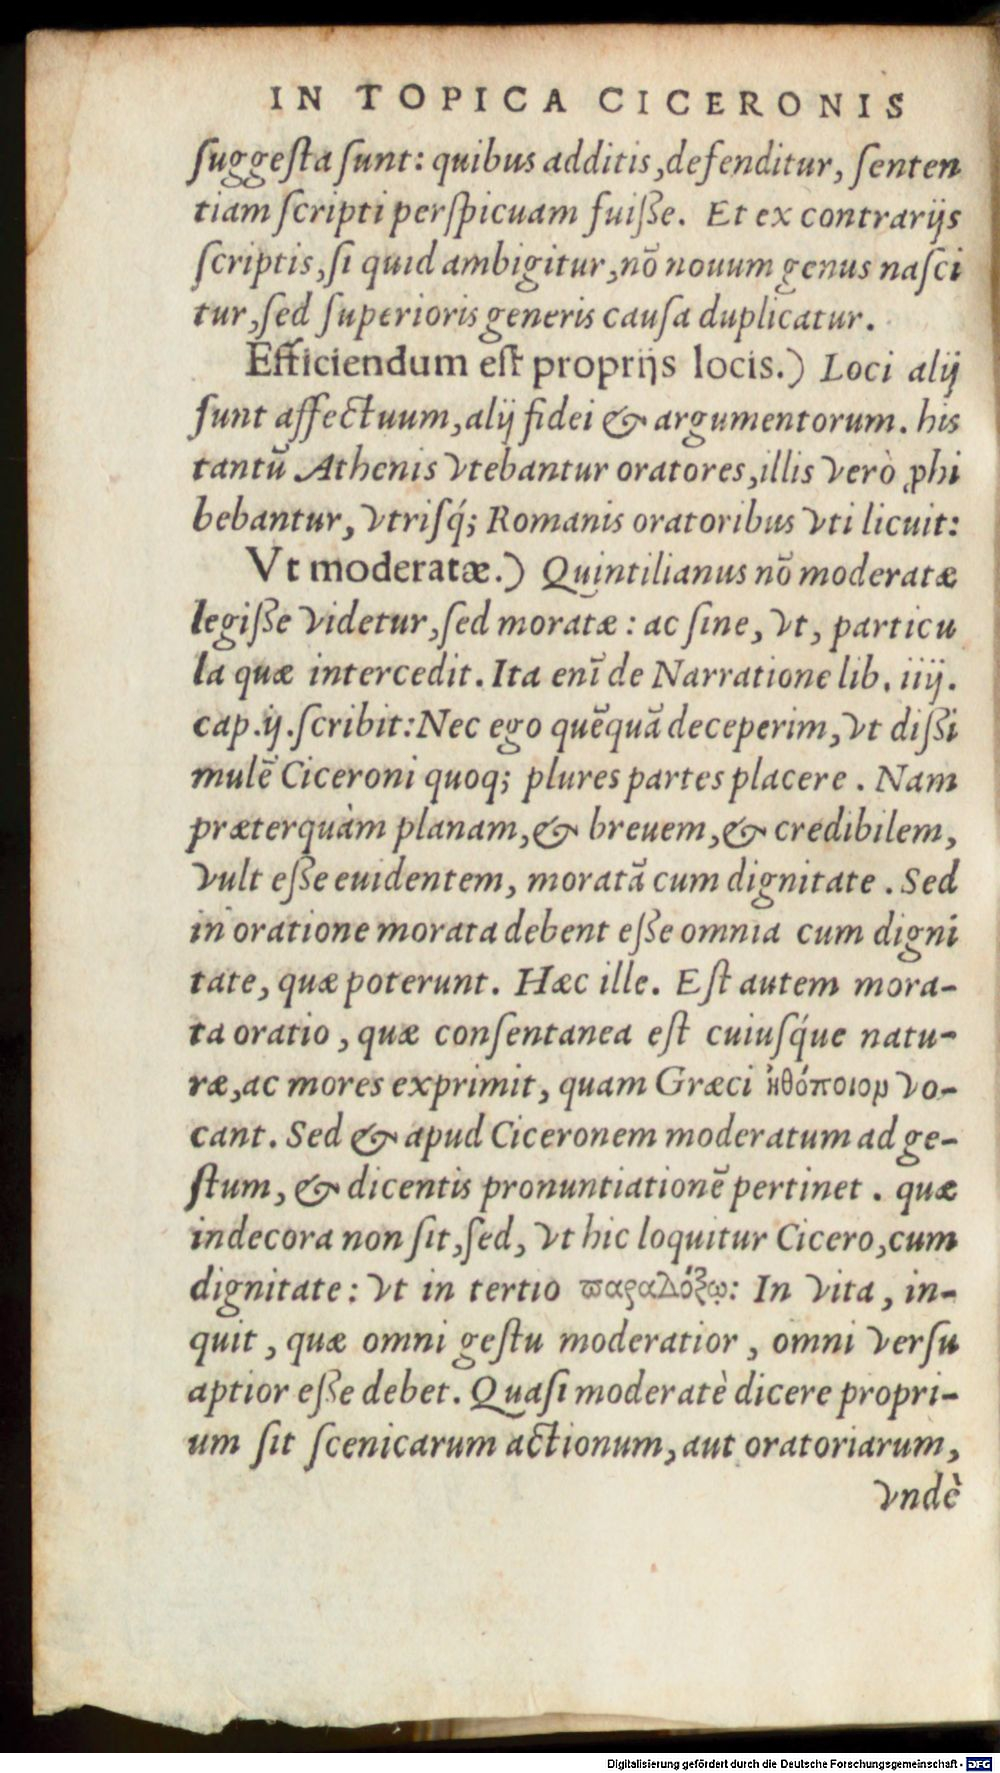 IN TOPICA CICERONIS
suggesta sunt: quibus additis, defenditur, senten
tiam scripti perspicuam fuiße. Et ex contrarijs
scriptis, si quid ambigitur, nō nouum genus nasci
tur, sed superioris generis causa duplicatur.
Efficiendum est proprijs locis.) Loci alij
sunt affectuum, alij fidei & argumentorum. his
tantũ Athenis vtebantur oratores, illis verò ꝓhi
bebantur, vtrisq́; Romanis oratoribus vti licuit:
Vt moderatæ.) Quintilianus nō moderatæ
legiße videtur, sed moratæ: ac sine, vt, particu
la quæ intercedit. Ita enī de Narratione lib. iiij.
cap. ij. scribit: Nec ego quēquā deceperim, vt dißi
mulē Ciceroni quoq; plures partes placere. Nam
præterquàm planam, & breuem, & credibilem,
vult eße euidentem, moratā cum dignitate. Sed
in oratione morata debent eße omnia cum digni
tate, quæ poterunt. Hæc ille. Est autem mora-
ta oratio, quæ consentanea est cuiusq́ue natu-
ræ, ac mores exprimit, quam Græci ἠθόποιον vo-
cant. Sed & apud Ciceronem moderatum ad ge-
stum, & dicentis pronuntiationē pertinet. quæ
indecora non sit, sed, vt hic loquitur Cicero, cum
dignitate: vt in tertio ϖαραδόξῳ: In vita, in-
quit, quæ omni gestu moderatior, omni versu
aptior eße debet. Quasi moderatè dicere propri-
um sit scenicarum actionum, aut oratoriarum,
vndè
Digitalisierung gefördert durch die Deutsche Forschungsgemeinschaft - DFG